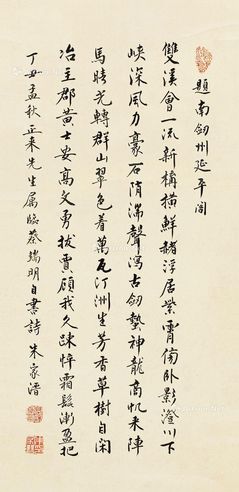 題南劒州延平閣
雙溪會一流新構橫鮮赭浮居紫霄端臥影澄川下
峽深風力豪石隋湍聲瀉古劒蟄神龍高帆來陣
馬晴光轉群山翠色着萬瓦汀洲生芳香草樹自閑
冶主郡黃士安高文勇拔賈顧我久疎悴霜髭漸盈把
丁丑孟秋正来先生属臨蔡端明自書詩 朱家溍